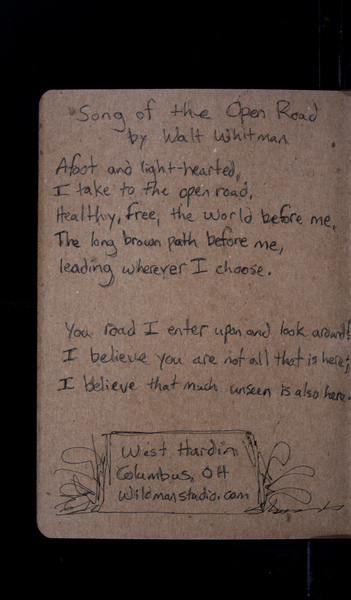 Song of the Open Road
by Walt Whitman
Afoot and light-hearted,
I take to the open road,
Healthy, free, the world before me,
The long brown path before me,
leading wherever I choose.
You road I enter upon and look around!
I believe you are not all that is here;
I believe that much unseen is also here.
West Hardin
Columbus, OH
Wildmanstudio.com